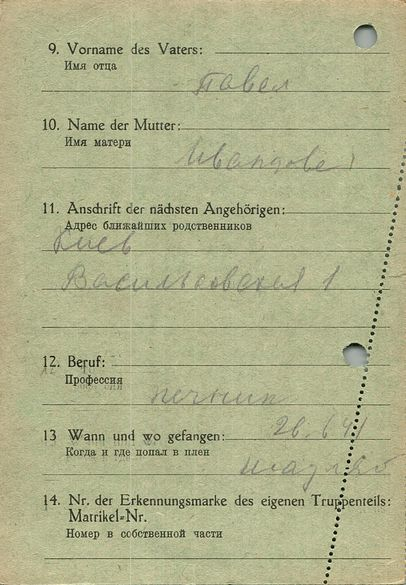 9. Vorname des Vaters:
Имя отца
Павел
10. Name der Mutter:
Имя матери
11. Anschrift der nächsten Angehörigen:
Адрес ближайших родственников
Киев
Васильковская 1
12. Beruf:
Профессия
печник
13 Wann und wo gefangen:
Когда и где попал в плен
26.6 41
14. Nr. der Erkennungsmarke des eigenen Truppenteils:
Matrikel=Nr.
Номер в собственной части